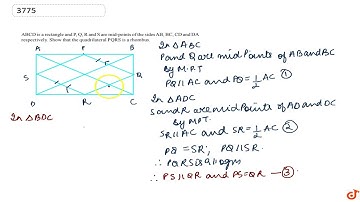 3775
ABCD is a rectangle and P, Q, R and S are mid-points of the sides AB, BC, CD and DA
respectively. Show that the quadrilateral PQRS is a rhombus.
A P B
S Q
D R C
In △BDC
In △ABC
P and Q are mid Points of AB and BC
by M.P.T
PQ || AC and PQ = 1/2 AC ①
In △ADC
S and R are mid Points of AD and DC
by MPT.
SR || AC and SR = 1/2 AC ②
PQ = SR, PQ || SR.
∴ PQRS is a ||ogm
∴ PS || QR and PS = QR — ③